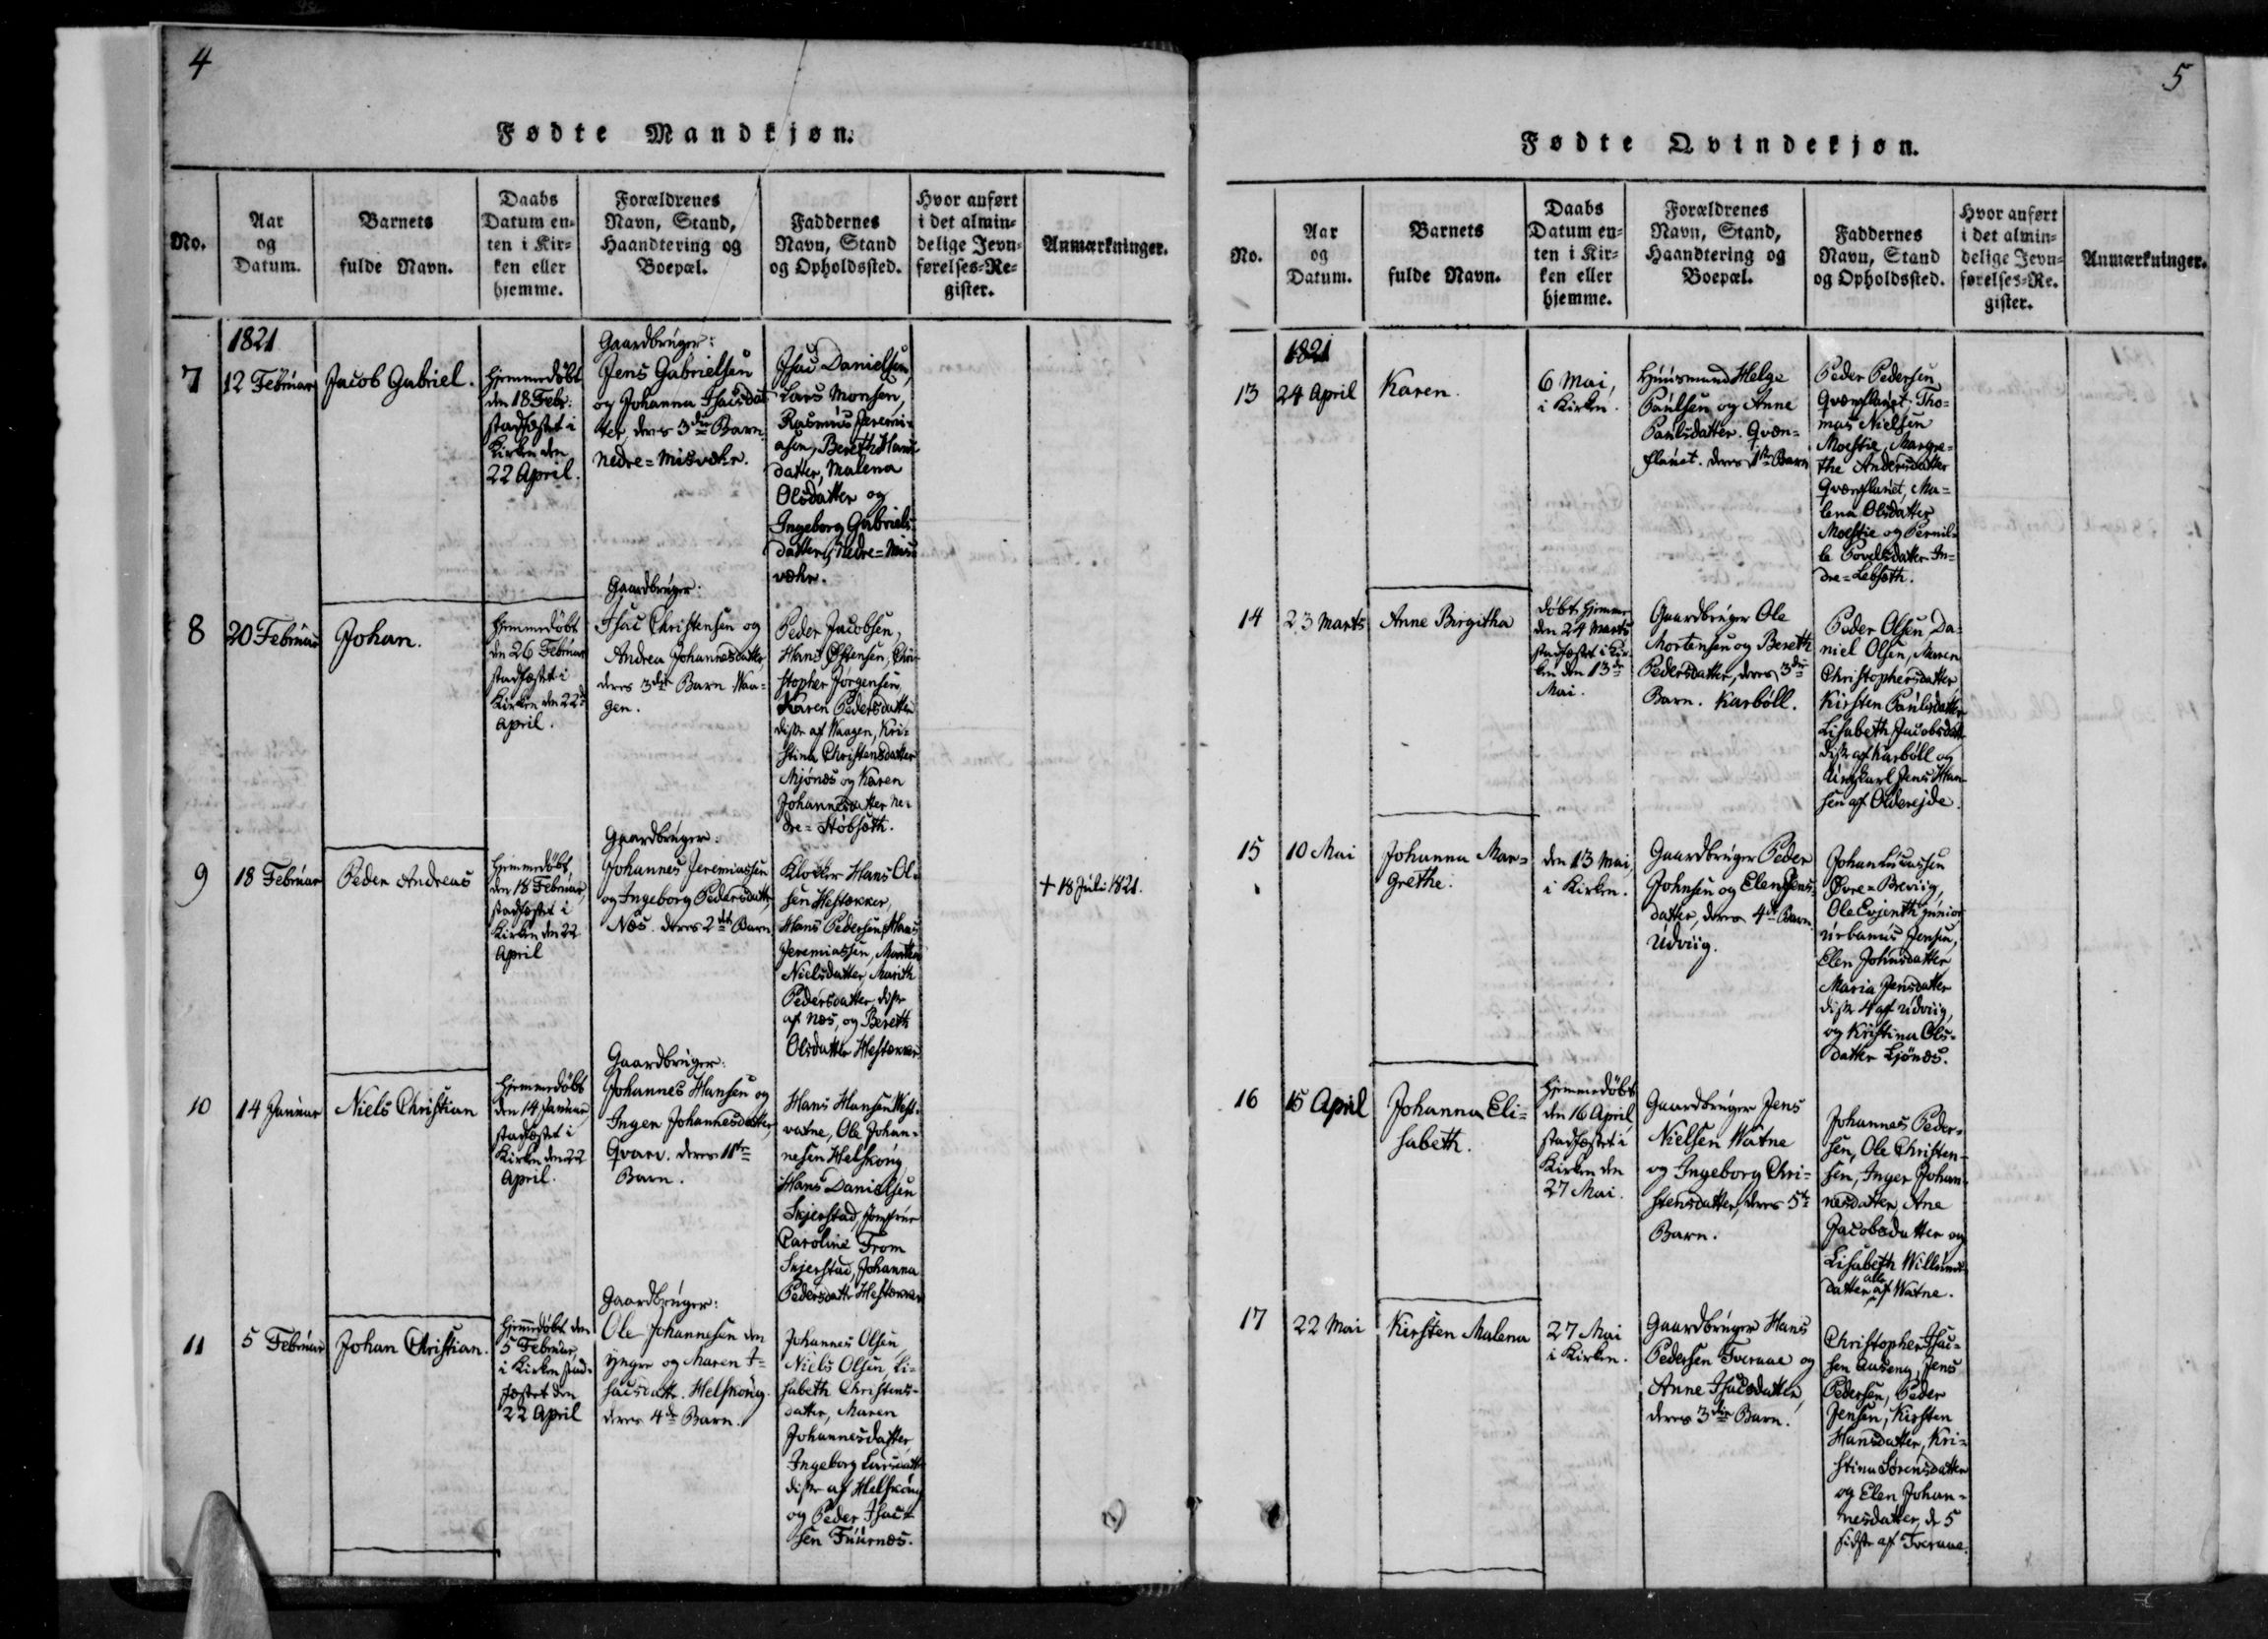 4
Fødte Mandkjøn.
No.
Aar
og
Datum.
Barnets
fulde Navn.
Daabs
Datum en=
ten i Kir=
ken eller
hjemme.
Forældrenes
Navn, Stand,
Haandtering og
Boepæl.
Faddernes
Navn, Stand
og Opholdssted.
Hvor anført
i det almin=
delige Jevn=
førelses=Re=
gister.
Anmærkninger.
1821
7
12 Februar
Jacob Gabriel.
Hjemmedöbt
den 18 Febr.
stadfæstet i
Kirken den
22 April.
Gaardbruger:
Jens Gabrielsen
og Johanna Isacsdat
ter, deres 3die Barn.
Nedre=Misvær.
Isac Danielsen,
Lars Monsen,
Rasmus Jeremi=
asen, Bereth Hans
datter, Malena
Olsdatter og
Ingeborg Gabriels=
datter, Nedre=Mis
vær.
8
20 Februar
Johan.
Hjemmedöbt
den 26 Februar
stadfæstet i
Kirken den 22de
April.
Gaardbruger:
Isac Christensen og
Andrea Johannesdatter,
deres 3die Barn Waa=
gen.
Peder Jacobsen,
Hans Estensen, Chri
stopher Jorgensen,
Karen Pedersdatter
disse af Waagen, Kri=
stina Christensdatter
Mjönes og Karen
Johannesdatter Ne=
dre=Stöbsæth.
9
18 Februar
Peder Andreas
Hjemmedöbt
den 18 Februar,
stadfæstet i
Kirken den 22
April
Gaardbruger:
Johannes Jeremiassen
og Ingeborg Pedersdatter,
Næs. deres 2det Barn
Klocker Hans Ol=
sen Hestækker,
Hans Pedersen, Hans
Jeremiassen, Martha
Nielsdatter, Marith
Pedersdatter, disse
af Næs, og Bereth
Olsdatter Hestækker
+ 18 Juli 1821.
10
14 Januar
Niels Christian
Hjemmedöbt
den 14 Januar,
stadfæstet i
Kirken den 22
April.
Gaardbruger:
Johannes Hansen og
Inger Johannesdatter,
Qvarv. deres 11te
Barn.
Hans Hansen West=
vatne, Ole Johan=
nesen Helskoug,
Hans Danielsen
Skjerstad, Jomfrue
Caroline From
Skjerstad, Johanna
Pedersdatter Hestækker
11
5 Februar
Johan Christian.
Hjemmedöbt den
5 Februar,
i Kirken stad=
fæstet den
22 April
Gaardbruger:
Ole Johannesen den
yngre og Maren I=
sacsdatr. Helskoug.
deres 4de Barn.
Johannes Olsen,
Niels Olsen, Li=
sabeth Christens=
datter, Maren
Johannesdatter,
Ingeborg Larsdatter
disse af Helskoug
og Peder Isac=
sen Fuurnæs.
5
Fødte Qvindekjøn.
No.
Aar
og
Datum.
Barnets
fulde Navn.
Daabs
Datum en=
ten i Kir=
ken eller
hjemme.
Forældrenes
Navn, Stand,
Haandtering og
Boepæl.
Faddernes
Navn, Stand
og Opholdssted.
Hvor anført
i det almin=
delige Jevn=
førelses=Re.
gister.
Anmærkninger.
1821
13
24 April
Karen.
6 Mai,
i Kirken.
Huusmand Helge
Paulsen og Anne
Paulsdatter. Qvæn=
flauet. deres 1ste Barn
Peder Pedersen
Qvænflauet, Tho=
mas Nielsen
Moestie, Margre=
the Andersdatter
Qvænflauet, Ma=
lena Olsdatter
Moestie og Pernil=
le Povelsdatter In=
dre=Lebsæth.
14
23 Marts
Anne Birgitha
döbt hjemme
den 24 Marts
stadfæstet i Kir=
ken den 13de
Mai.
Gaardbruger Ole
Mortensen og Bereth
Pedersdatter, deres 3die
Barn. Karböll.
Peder Olsen, Da=
niel Olsen, Maren
Christophersdatter
Kirsten Paulsdatter
Lisabeth Jacobsdatt
disse af Karböll og
Ungkarl Jens Han
sen af Oldereide.
15
10 Mai
Johanna Mar=
grethe.
den 13 Mai,
i Kirken.
Gaardbruger Peder
Johnsen og Elen Jens=
datter, deres 4de Barn.
Udviig.
Johan Lucassen
Övre=Breviig,
Ole Evjenth junior
Urbanus Jensen,
Elen Johnsdatter,
Maria Jensdatter
disse 4 af Udviig,
og Kristina Ols=
datter Ljönæs.
16
15 April
Johanna Eli=
sabeth.
Hjemmedöbt
den 16 April
stadfæstet i
Kirken den
27 Mai.
Gaardbruger Jens
Nielsen Watne
og Ingeborg Chri=
stensdatter, deres 5te
Barn.
Johannes Peder=
sen, Ole Christen=
sen, Inger Johan=
nesdatter, Ane
Jacobsdatter og
Lisabeth Willums
datter alle af Watne.
17
22 Mai
Kirsten Malena
27 Mai
i Kirken.
Gaardbruger Hans
Pedersen Tveraae og
Anne Isacsdatter,
deres 3die Barn.
Christopher Isac=
sen Auseng, Jens
Pedersen, Peder
Jensen, Kirsten
Hansdatter, Kri=
stina Sörensdatter
og Elen Johan=
nesdatter, de 5
sidste af Tveraae.